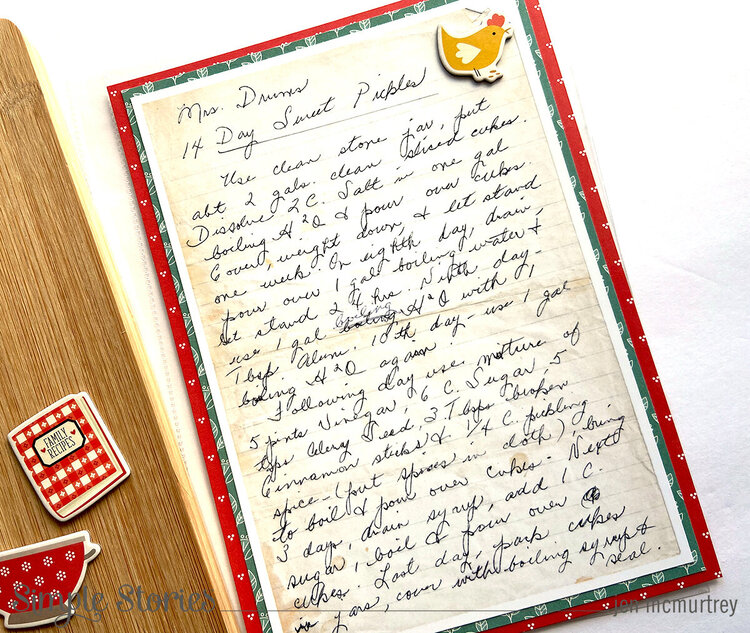 Mrs. Drums
14 Day Sweet Pickles
Use clean stone jar, put
abt 2 gals. clean sliced cukes.
Dissolve 2 C. Salt in one gal
boiling H2O & pour over cukes.
Cover, weight down, & let stand
one week. On eighth day, drain,
pour over 1 gal boiling water &
let stand 24 hrs. Ninth day-
boiling
use 1 gal H2O with 1
Tbsp Alum. 10th day - use 1 gal
boiling H2O again.
Following day use mixture of
5 pints Vinegar, 6 C. Sugar, 5
tsps Celery Seed, 3 Tbsps broken
Cinnamon sticks & 1/4 C. pickling
spice-(put spices in cloth), bring
to boil & pour over cukes. Next
3 days, drain syrup, add 1 C.
sugar, boil & pour over
cukes. Last day, pack cukes
in jars, cover with boiling syrup &
seal.
FAMILY
RECIPES
Simple Stories
jen mcmurtrey